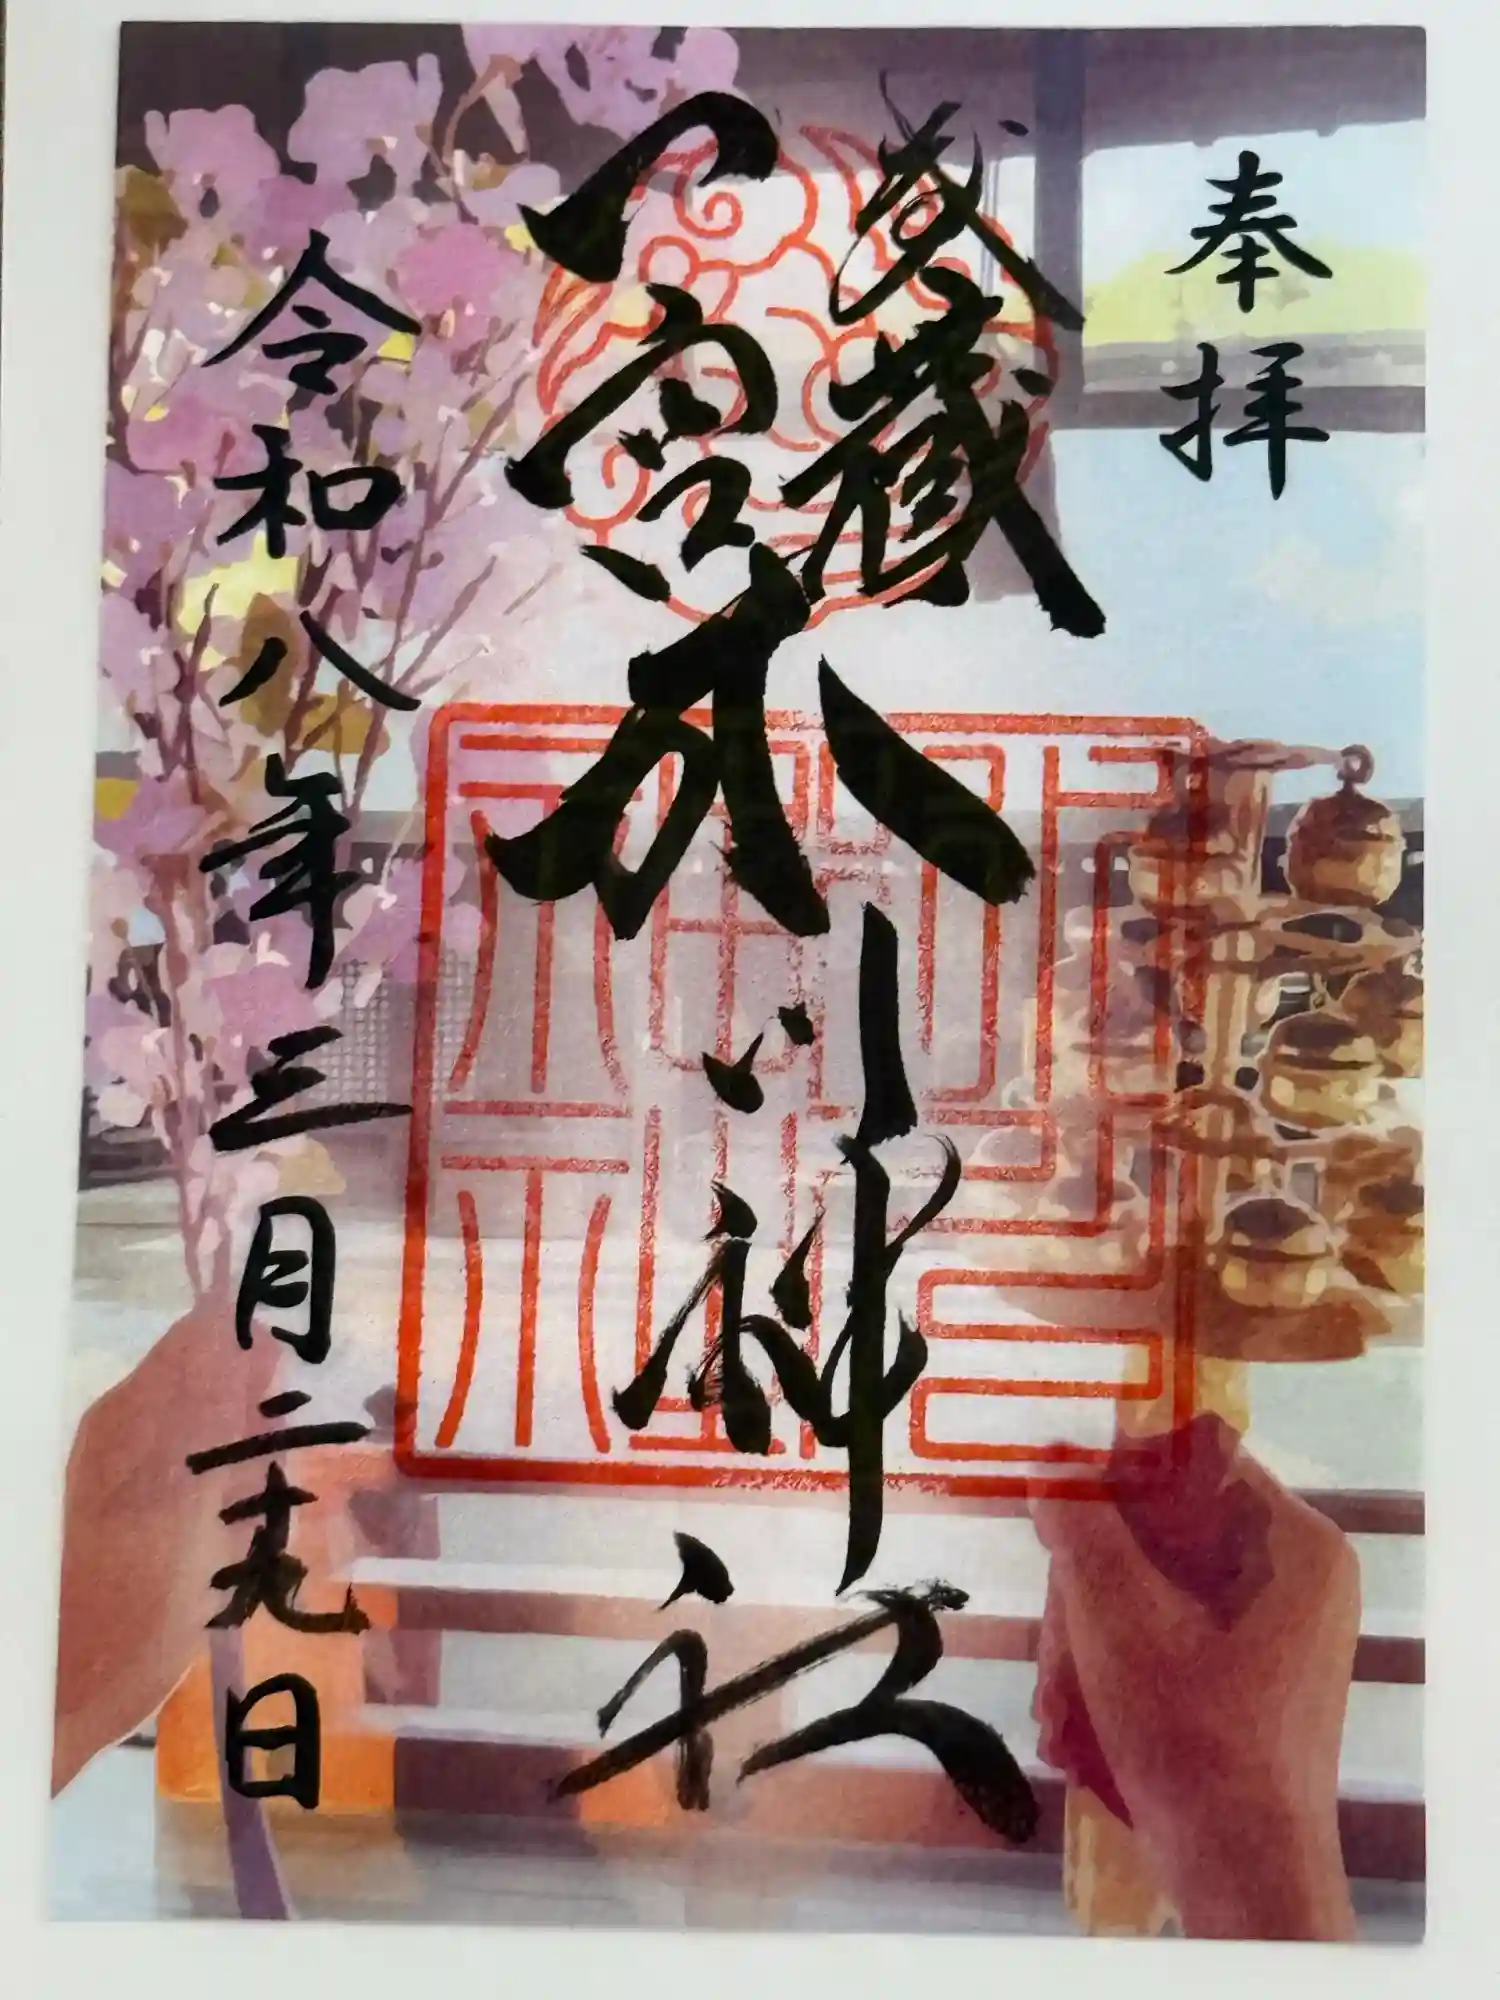 奉拝
武蔵
一宮氷川神社
令和八年三月二十九日